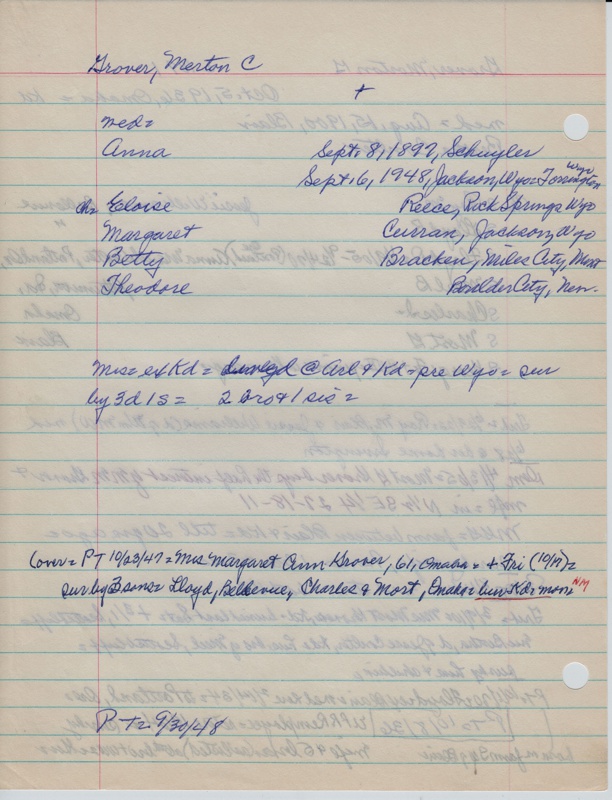 Grover, Merton C
+
med=
Anna Sept. 8, 1897, Schuyler
Sept. 6, 1948, Jackson, Wyo= Torrington Wyo
ch= Eloise Reece, Rock Springs Wyo
Margaret Curran, Jackson, Wyo
Betty Bracken, Miles City, Mont
Theodore Boulder City, Nev.
Mrs= ex Kd = @ Arl & Kd = pre Wyo = sur
by 3d 1s = 2 bro & 1 sis =
(over = PT 10/23/47 = Mrs Margaret Ann Grover, 61, Omaha = + Fri (10/17) =
sur by 3 sons = Lloyd, Bellevue, Charles & Mort, Omaha = bur Kd = mon= NM
PT= 9/30/48